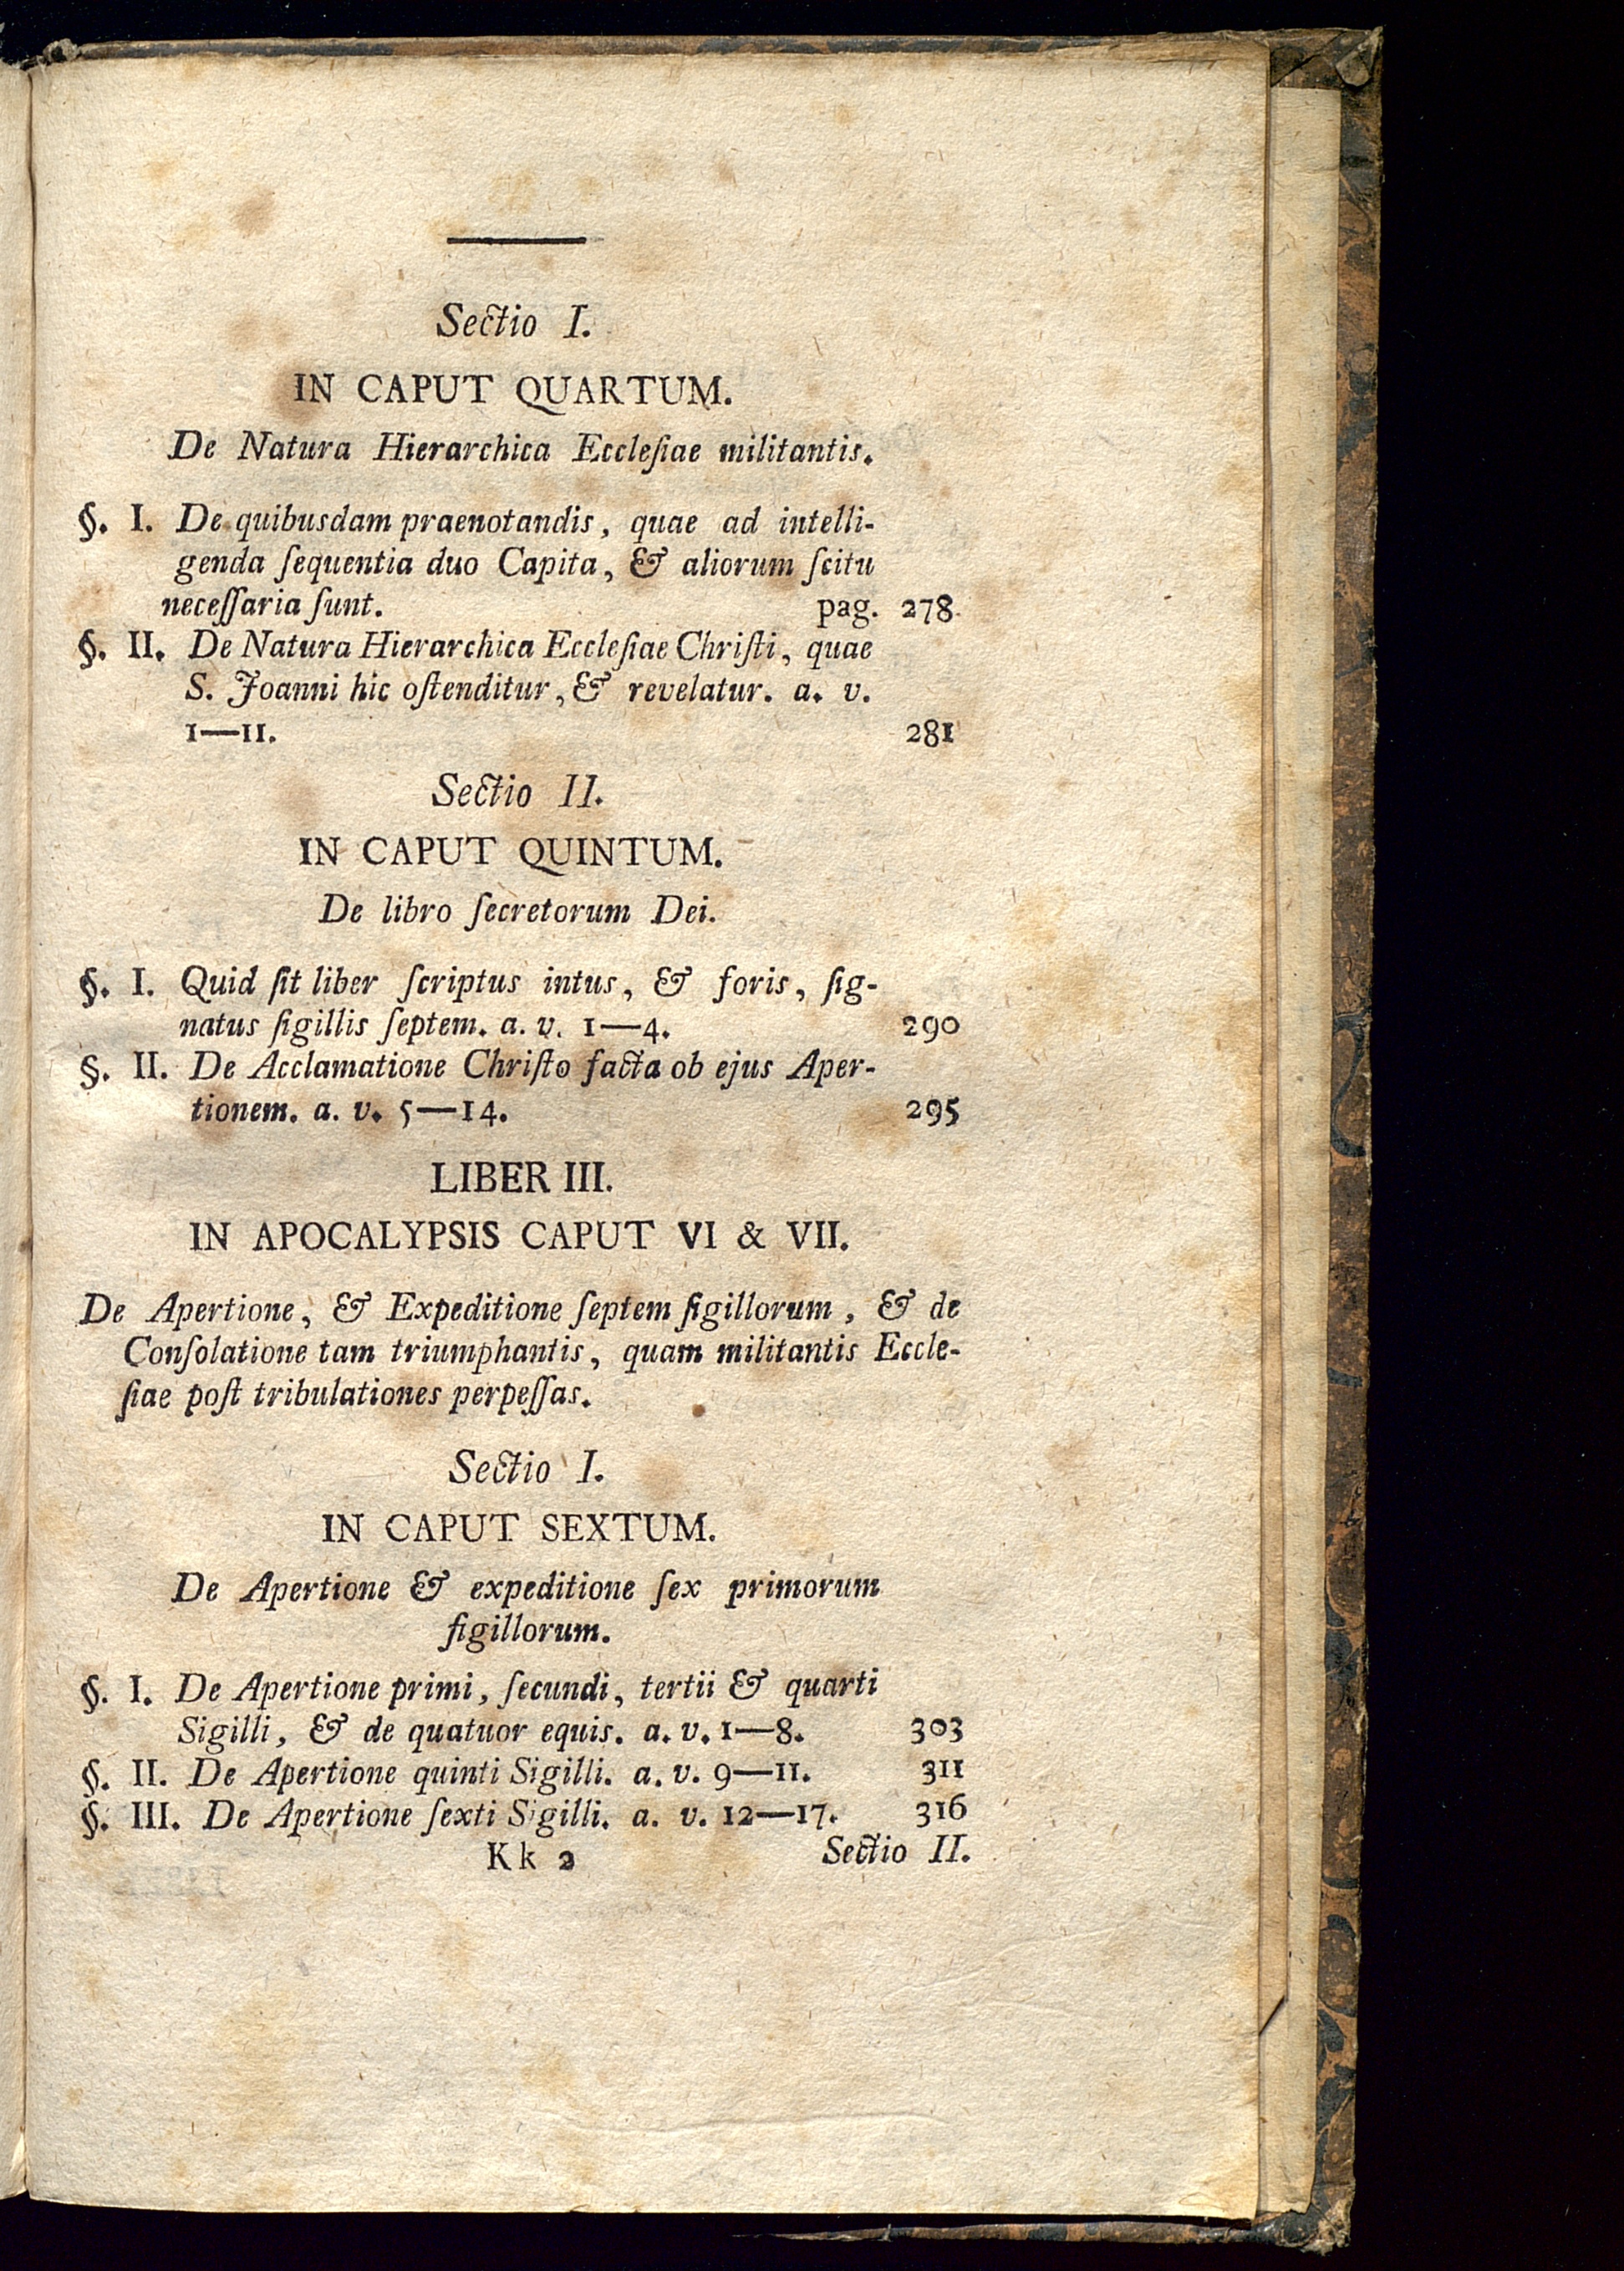 Sectio I.
IN CAPUT QUARTUM.
De Natura Hierarchica Eccleſiae militantis.
§. I. De quibusdam praenotandis, quae ad intelli-
genda ſequentia duo Capita, & aliorum ſcitu
neceſſaria ſunt. pag. 278
§. II. De Natura Hierarchica Eccleſiae Chriſti, quae
S. Joanni hic oſtenditur, & revelatur. a. v.
1—11. 281
Sectio II.
IN CAPUT QUINTUM.
De libro ſecretorum Dei.
§. I. Quid ſit liber ſcriptus intus, & foris, ſig-
natus ſigillis ſeptem. a. v. 1—4. 290
§. II. De Acclamatione Chriſto facta ob ejus Aper-
tionem. a. v. 5—14. 295
LIBER III.
IN APOCALYPSIS CAPUT VI & VII.
De Apertione, & Expeditione ſeptem ſigillorum, & de
Conſolatione tam triumphantis, quam militantis Eccle-
ſiae poſt tribulationes perpeſſas.
Sectio I.
IN CAPUT SEXTUM.
De Apertione & expeditione ſex primorum
ſigillorum.
§. I. De Apertione primi, ſecundi, tertii & quarti
Sigilli, & de quatuor equis. a. v. 1—8. 303
§. II. De Apertione quinti Sigilli. a. v. 9—11. 311
§. III. De Apertione ſexti Sigilli. a. v. 12—17. 316
Kk 2 Sectio II.